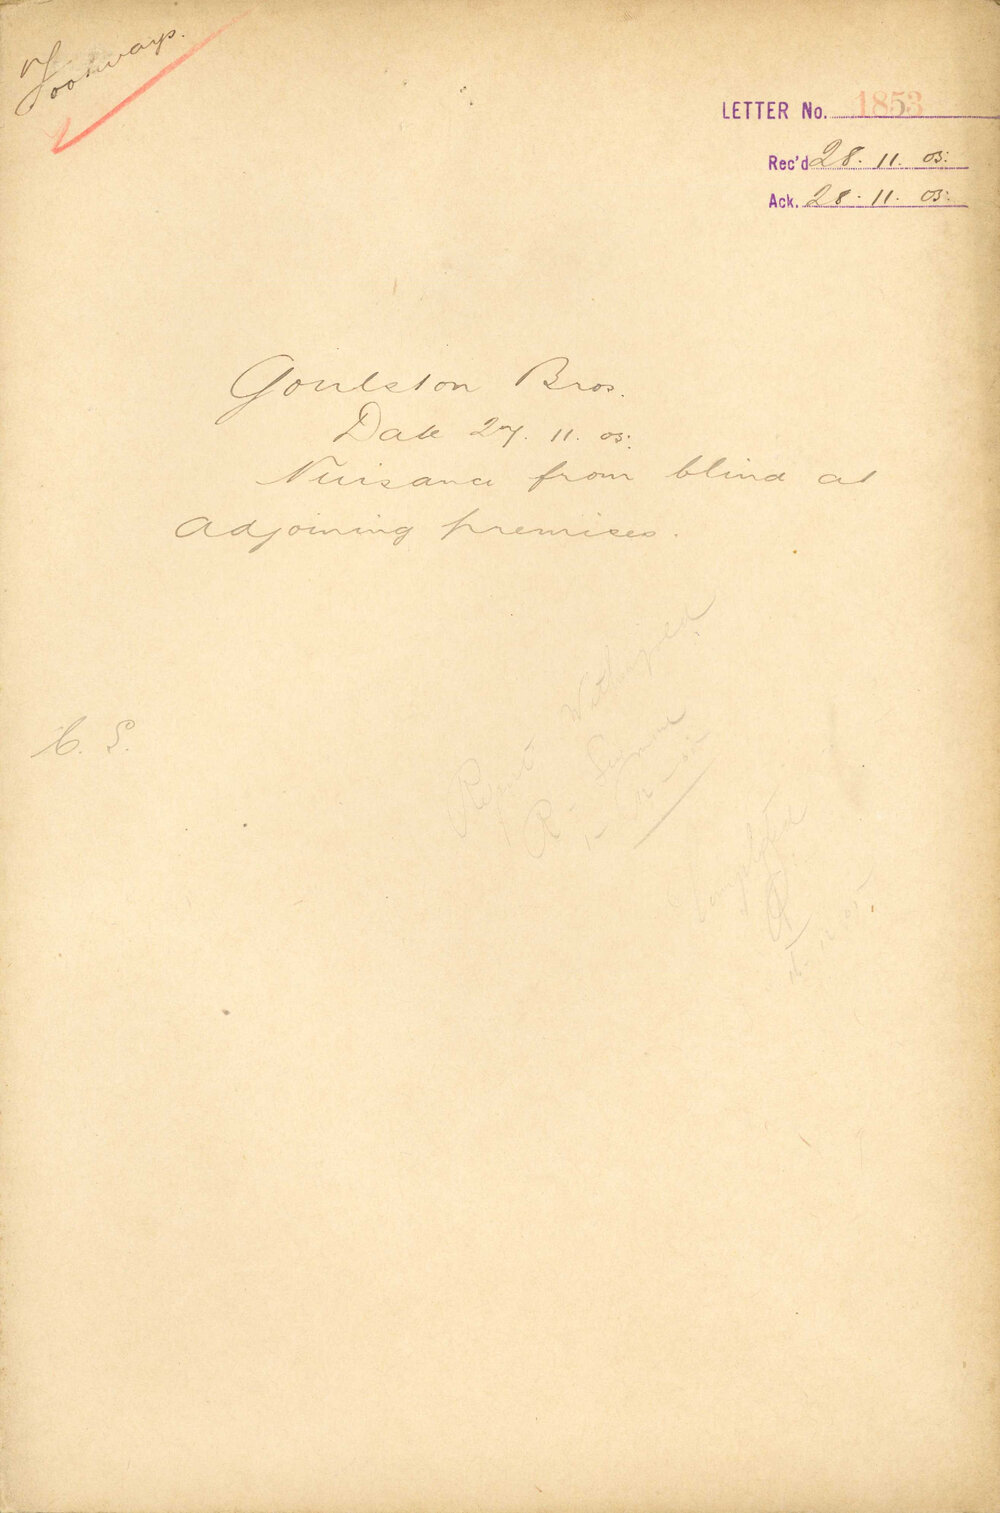 Footways.
LETTER No. 1853
Rec'd 28. 11. 05.
Ack. 28. 11. 05.
Goulston Bros.
Date 27. 11. 05.
Nuisance from blind at
adjoining premises.
C. S.
Report
R
Completed
R